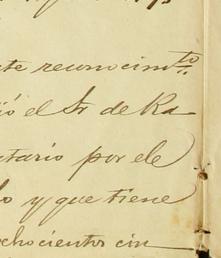 te reconocimto
ió el Sr de Ra
tario por ele
lo y que tiene
ochocientos cin